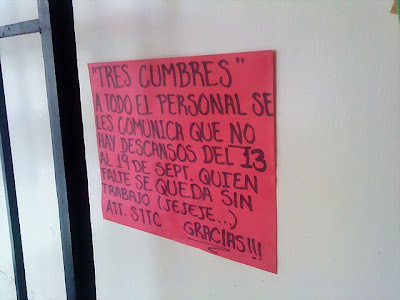 "TRES CUMBRES"
A TODO EL PERSONAL SE
LES COMUNICA QUE NO
HAY DESCANSOS DEL 13
AL 19 DE SEPT. QUIEN
FALTE SE QUEDA SIN
TRABAJO (JEJEJE...)
ATT. STTC
GRACIAS!!!